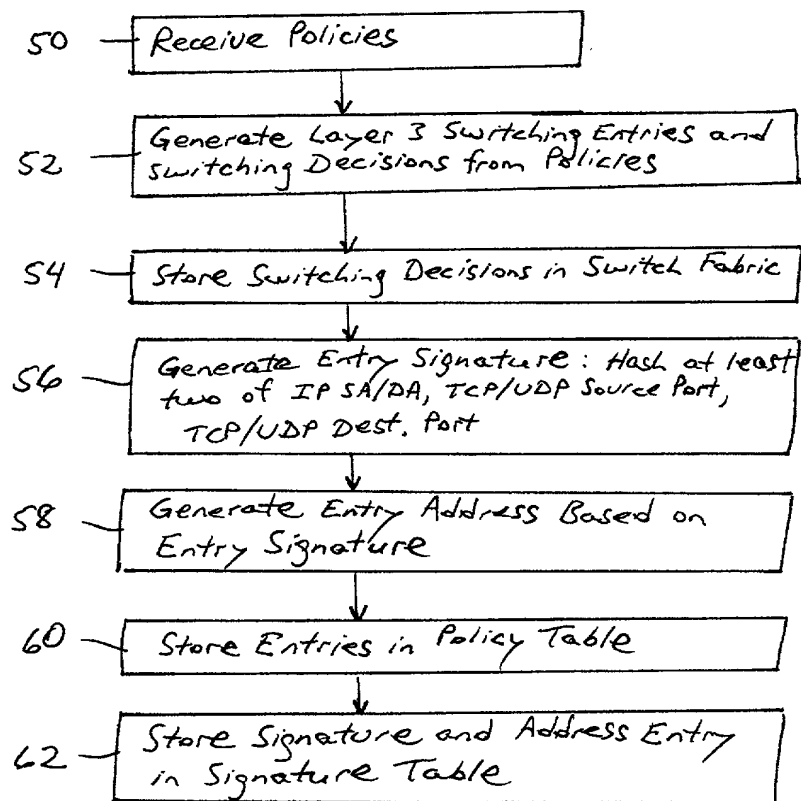 50
Receive Policies
52
Generate Layer 3 Switching Entries and
switching Decisions from Policies
54
Store Switching Decisions in Switch Fabric
56
Generate Entry Signature: Hash at least
two of IP SA/DA, TCP/UDP Source Port,
TCP/UDP Dest. Port
58
Generate Entry Address Based on
Entry Signature
60
Store Entries in Policy Table
62
Store Signature and Address Entry
in Signature Table